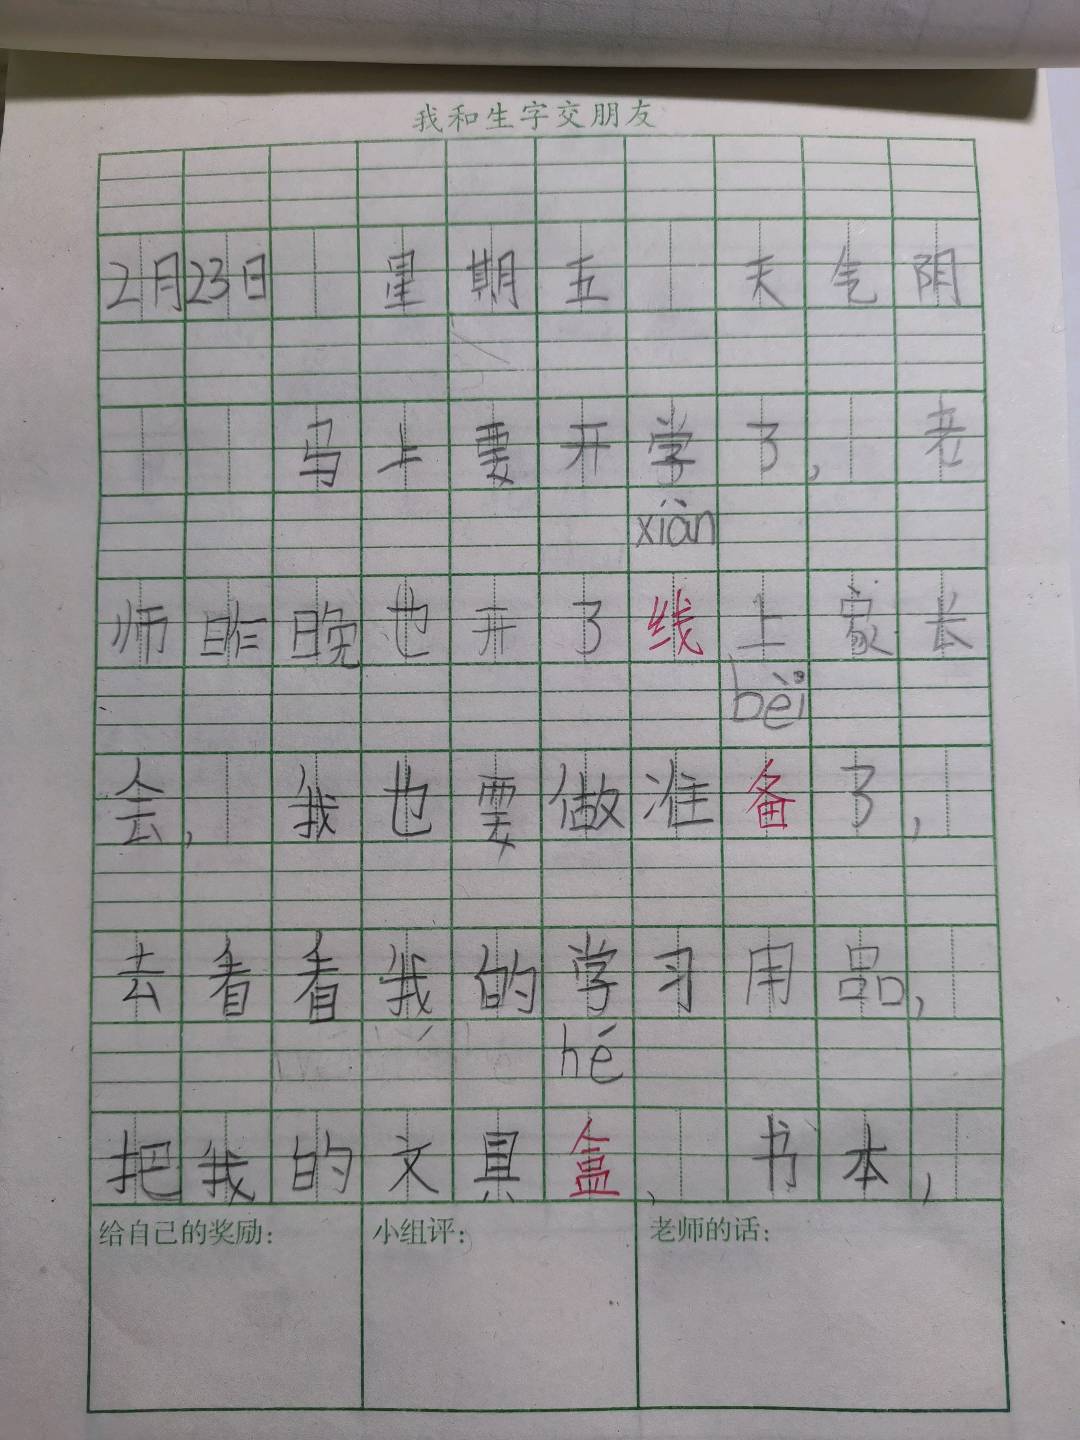 我和生字交朋友
2月23日 星期五 天气阴
马上要开学了，老
xiàn
师昨晚也开了线上家长
bèi
会，我也要做准备了，
去看看我的学习用品，
hé
把我的文具盒、书本，
给自己的奖励： 小组评： 老师的话：